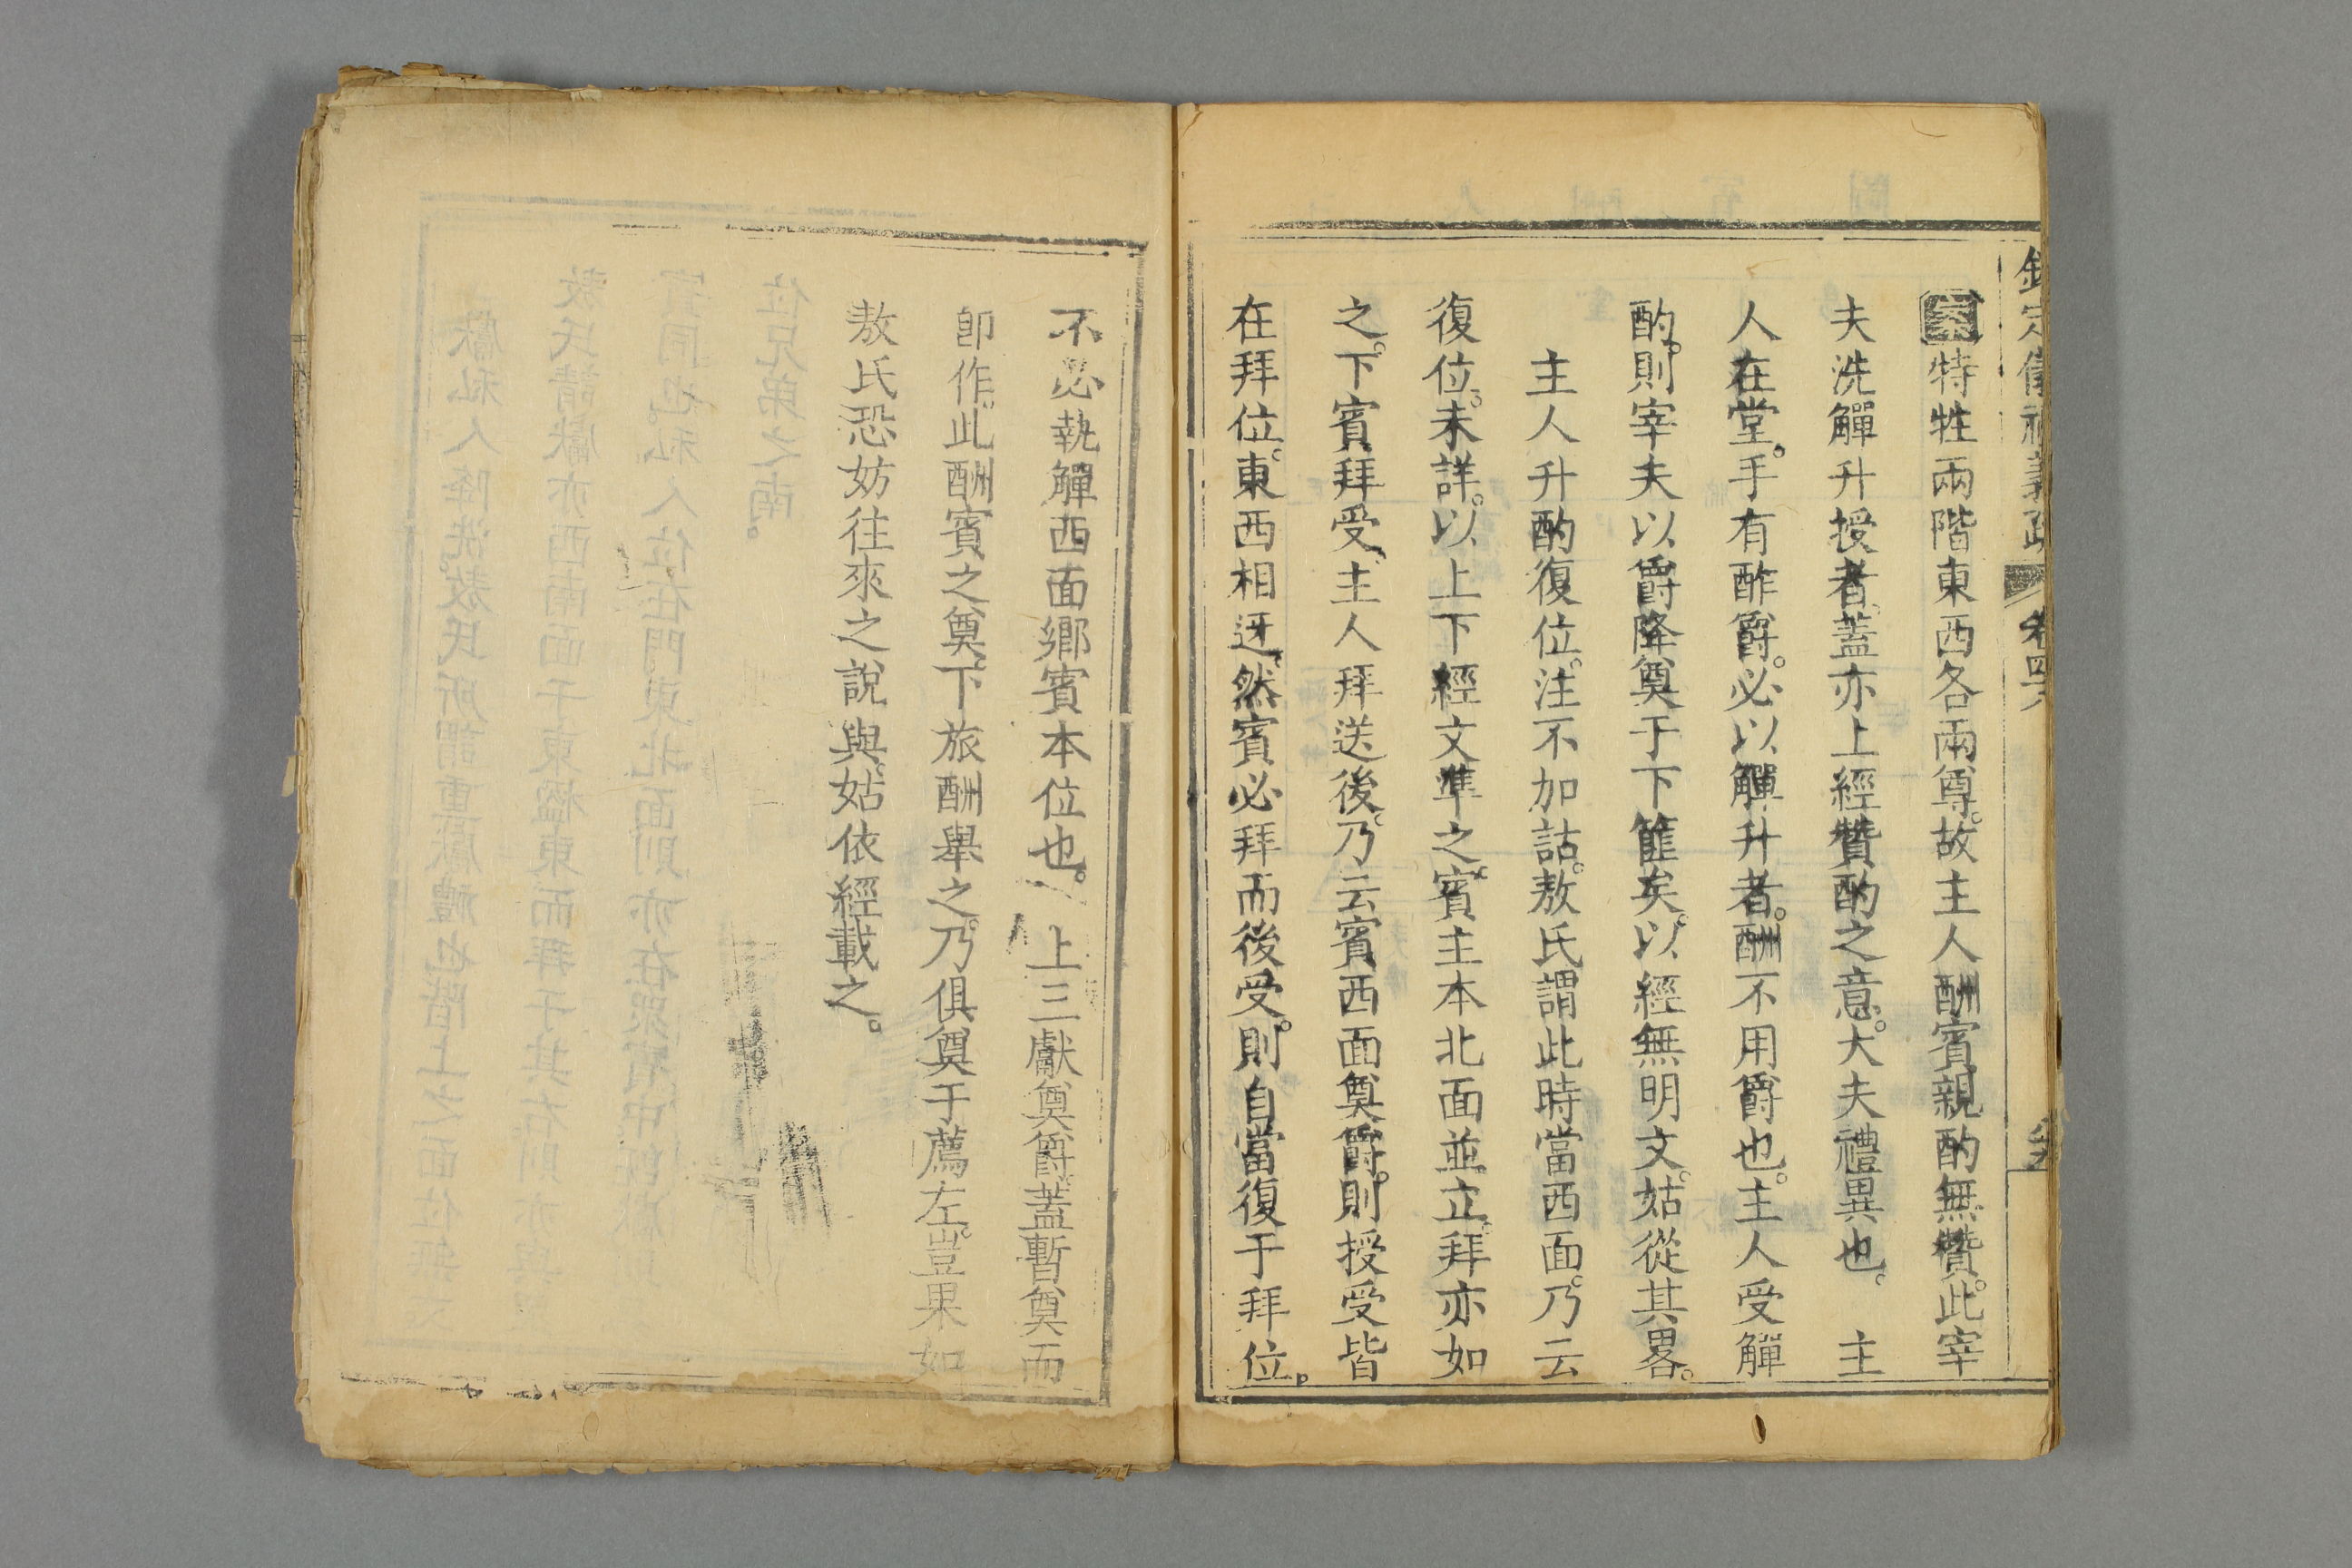 欽定儀禮義疏 卷四八
案特牲兩階東西各兩尊。故主人酬賓親酌無贊。此宰
夫洗觶升授者。蓋亦上經贊酌之意。大夫禮異也。 主
人在堂。手有酢爵。必以觶升者。酬不用爵也。主人受觶
酌。則宰夫以爵降奠于下篚矣。以經無明文。姑從其畧。
主人升酌復位。注不加詁。敖氏謂此時當西面。乃云
復位。未詳。以上下經文準之。賓主本北面並立。拜亦如
之。下賓拜受、主人拜送後。乃云賓西面奠爵。則授受皆
在拜位。東西相迓。然賓必拜而後受。則自當復于拜位。
不必執觶西面鄉賓本位也。 上三獻奠爵。蓋暫奠而
卽作。此酬賓之奠。下旅酬舉之。乃俱奠于薦左。豈果如
敖氏恐妨往來之說與。姑依經載之。